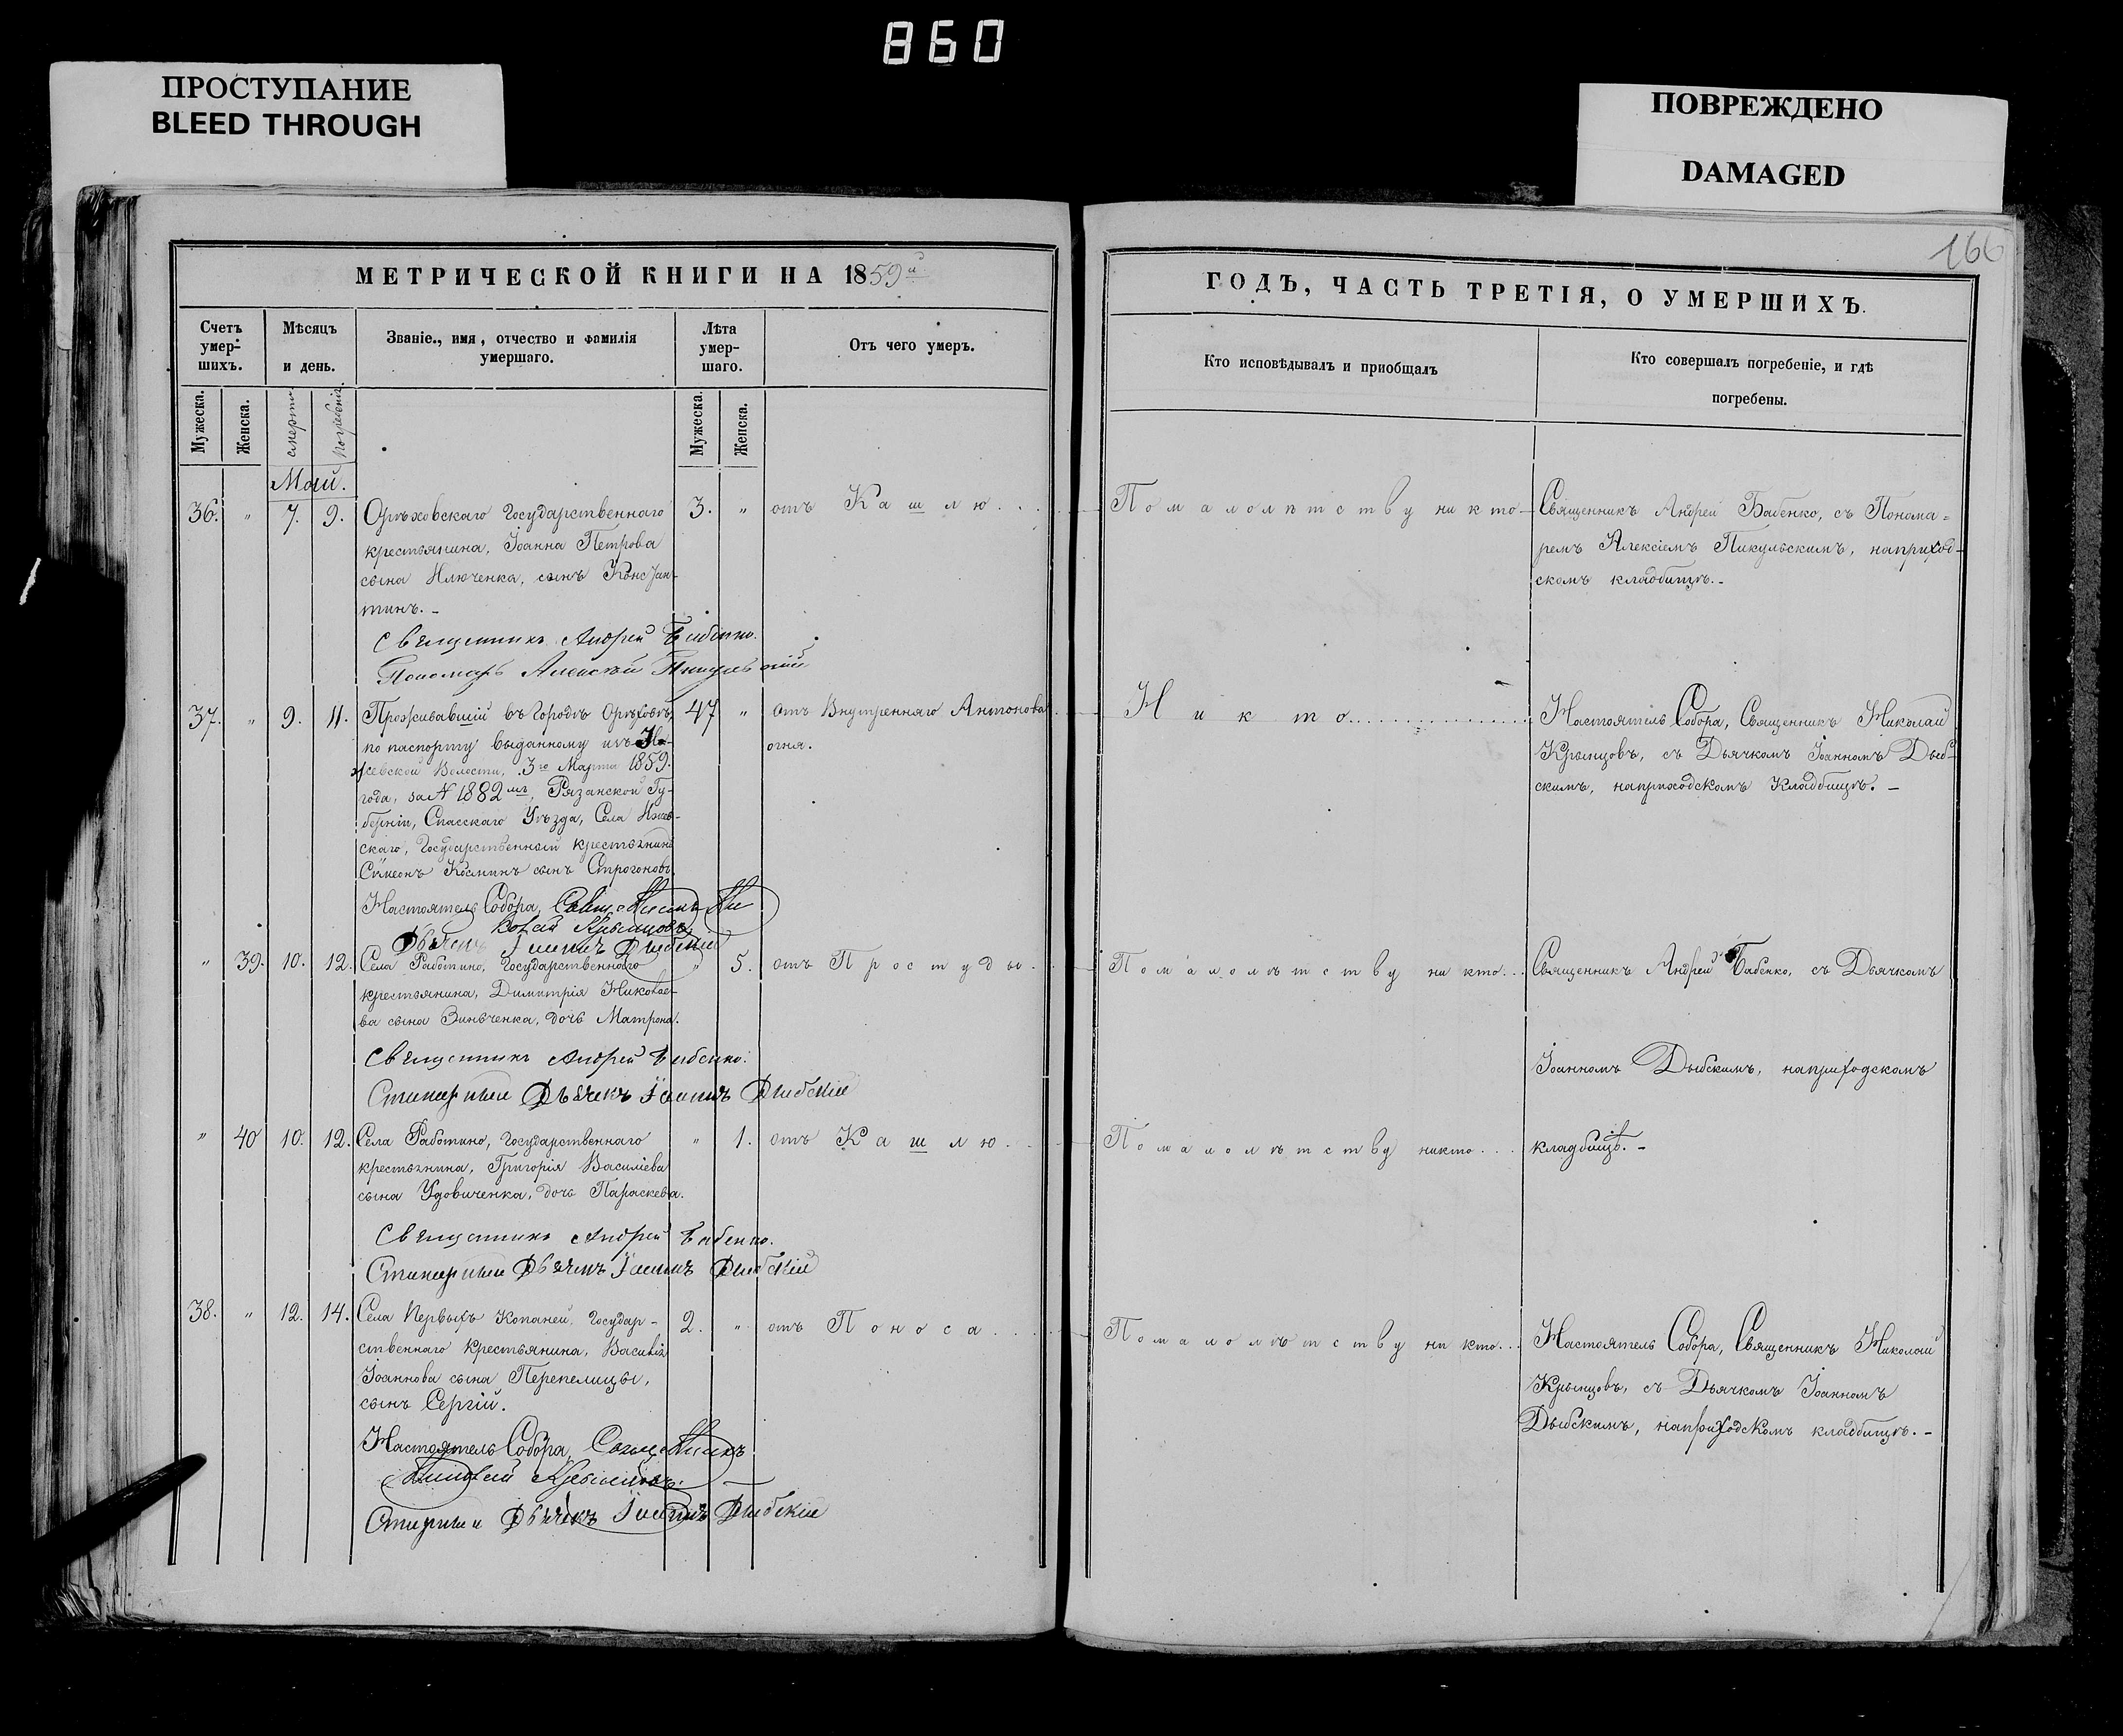 860
ПРОСТУПАНИЕ
BLEED THROUGH
ПОВРЕЖДЕНО
DAMAGED
166
МЕТРИЧЕСКОЙ КНИГИ НА 1859й
Счетъ умер-шихъ.
Мѣсяцъ и день.
Званіе., имя, отчество и фамилія умершаго.
Лѣта умер-шаго.
Отъ чего умеръ.
Мужеска.
Женска.
смерти
погребенія
Мужеска.
Женска.
Май.
36. „ 7. 9. Орѣховскаго Государственнаго 3. „ отъ Кашлю....
крестьянина, Іоанна Петрова
сына Ключенка, сынъ Констан-
тинъ. -
Священникъ Андрей Бабенко.
Пономарь Алексѣй Пикульскій
37. „ 9. 11. Проживавшій въ Городѣ Орѣховѣ, 47 „ отъ Внутренняго Антонова
по паспорту выданному изъ
огня.
Волости, 3го Марта 1859.
года, за № 1882мъ, Рязанской Гу-
берніи, Спасскаго Уѣзда, Села
скаго, Государственный крестьянинъ
Симеонъ Косминъ сынъ Строгоновъ.
Настоятель Собора, Священникъ Ни
колай Крынцовъ.
Дьячекъ Іоаннъ Дыбскій
„ 39. 10. 12. Села Работино, Государственнаго „ 5. отъ Простуды.
крестьянина, Димитрія Николае-
ва сына Зинченка, дочь Матрона.
Священникъ Андрей Бабенко.
Дьячекъ Іоаннъ Дыбскій
„ 40 10. 12. Села Работино, Государственнаго „ 1. отъ Кашлю.
крестьянина, Григорія Василіева
сына Удовиченка, дочь Параскева.
Священникъ Андрей Бабенко.
Дьячекъ Іоаннъ Дыбскій
38. „ 12. 14. Села Первыхъ Копаней, Государ- 2. „ отъ Поноса....
ственнаго крестьянина, Василія
Іоаннова сына Перепелицы,
сынъ Сергій.
Настоятель Собора, Священникъ
Николай Крынцовъ.
Дьячекъ Іоаннъ Дыбскій
ГОДЪ, ЧАСТЬ ТРЕТІЯ, О УМЕРШИХЪ.
Кто исповѣдывалъ и пріобщалъ
Кто совершалъ погребеніе, и гдѣ
погребены.
По малолѣтству никто
Священникъ Андрей Бабенко, съ Понома=
ремъ Алексіемъ Пикульскимъ, на приход-
скомъ кладбищѣ.-
Никто...............
Настоятель Собора, Священникъ Николай
Крынцовъ, съ Дьячкомъ Іоанномъ Дыб-
скимъ, на приходскомъ Кладбищѣ. -
По малолѣтству никто...
Священникъ Андрей Бабенко, съ Дьячкомъ
Іоанномъ Дыбскимъ, на приходскомъ
По малолѣтству никто...
кладбищѣ.-
По малолѣтству никто...
Настоятель Собора, Священникъ Николай
Крынцовъ, съ Дьячкомъ Іоанномъ
Дыбскимъ, на приходскомъ кладбищѣ.-